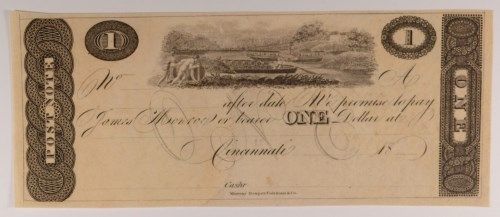 POST NOTE
1
1
ONE
No A
after date We promise to pay
James Monroe or bearer ONE Dollar at
Cincinnati 18
Cashr
Murray Draper Fairman & Co.